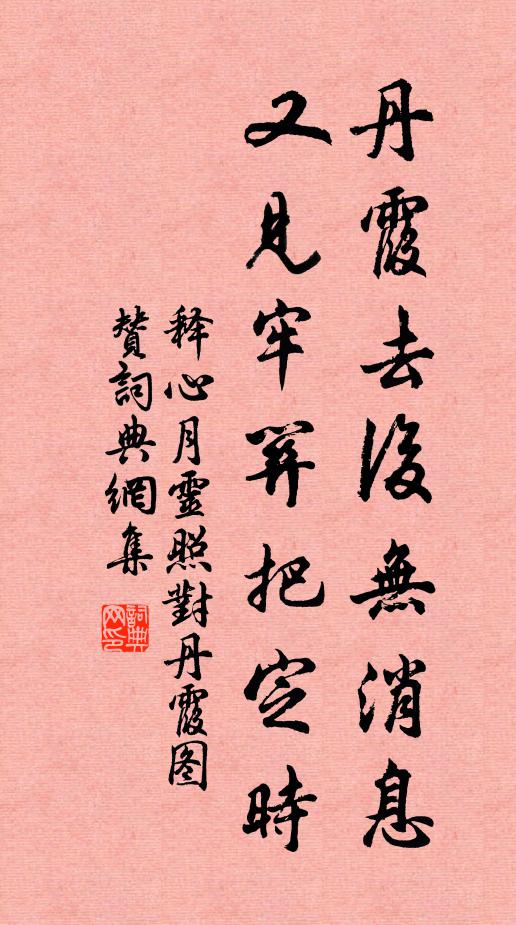 丹霞去後無消息
又見牢關把定時
释心月靈照對丹霞图
贊詞典網集
詞典网印